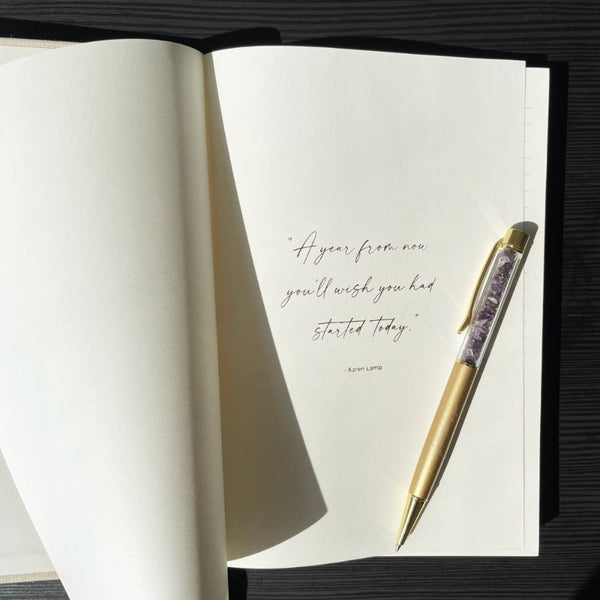 "A year from now
you'll wish you had
started today."
- Karen Lamb